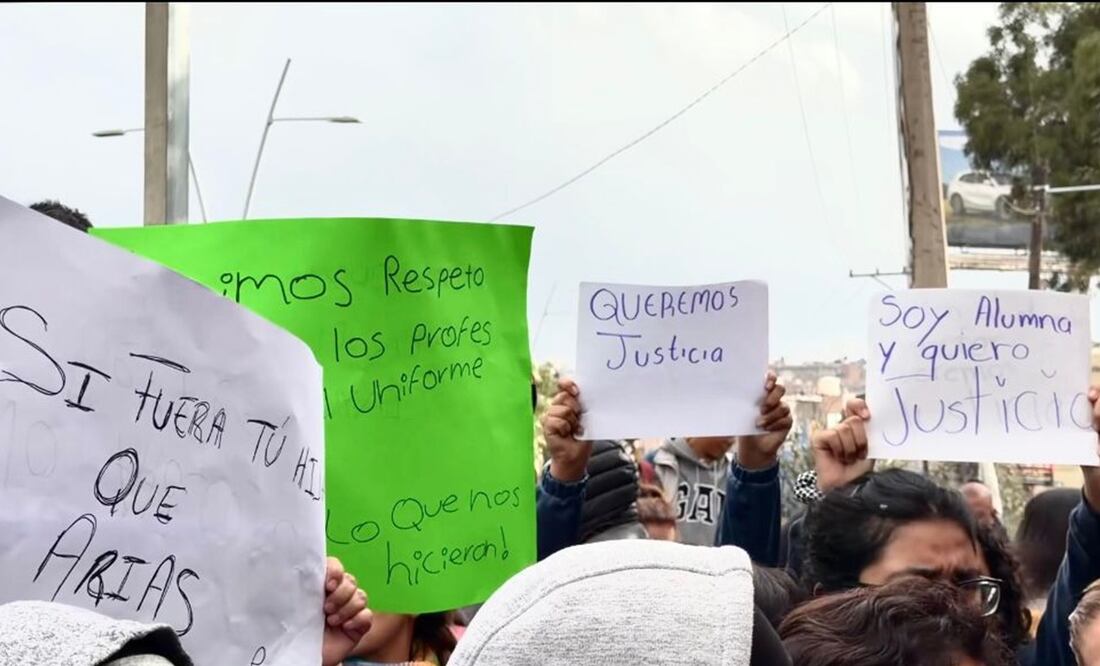 SI FUERA TÚ HIJ
QUE
ARIAS
imos Respeto
los profes
l Uniforme
Lo Que nos
hicieron!
QUEREMOS
Justicia
Soy Alumna
y quiero
Justicia
GA